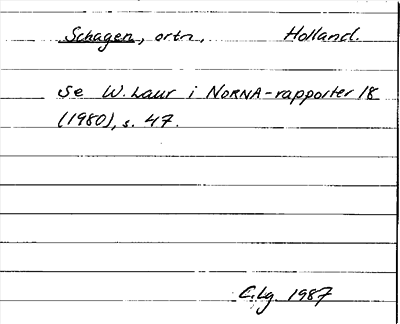 Schagen, ortn., Holland.
Se W. Laur i NORNA-rapporter 18
(1980), s. 47.
C.lg. 1987